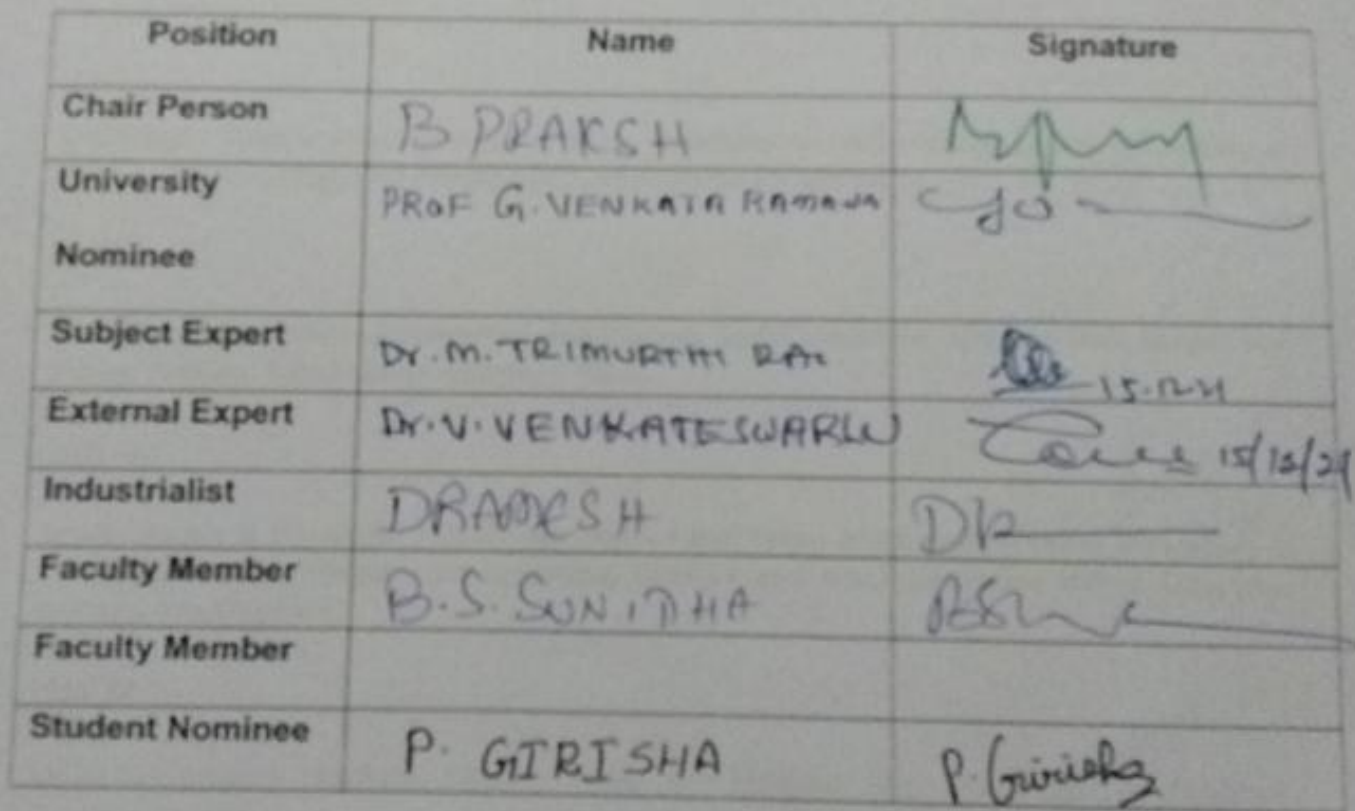 Position Name Signature
Chair Person B PRAKSH
University PROF G. VENKATA RAMANA
Nominee
Subject Expert Dr. M. TRIMURTHI 15.12.21
External Expert Dr. V. VENKATESWARLU 15/12/21
Industrialist DRAMESH
Faculty Member B.S. SUNITHA
Faculty Member
Student Nominee P. GIRISHA P. Girisha